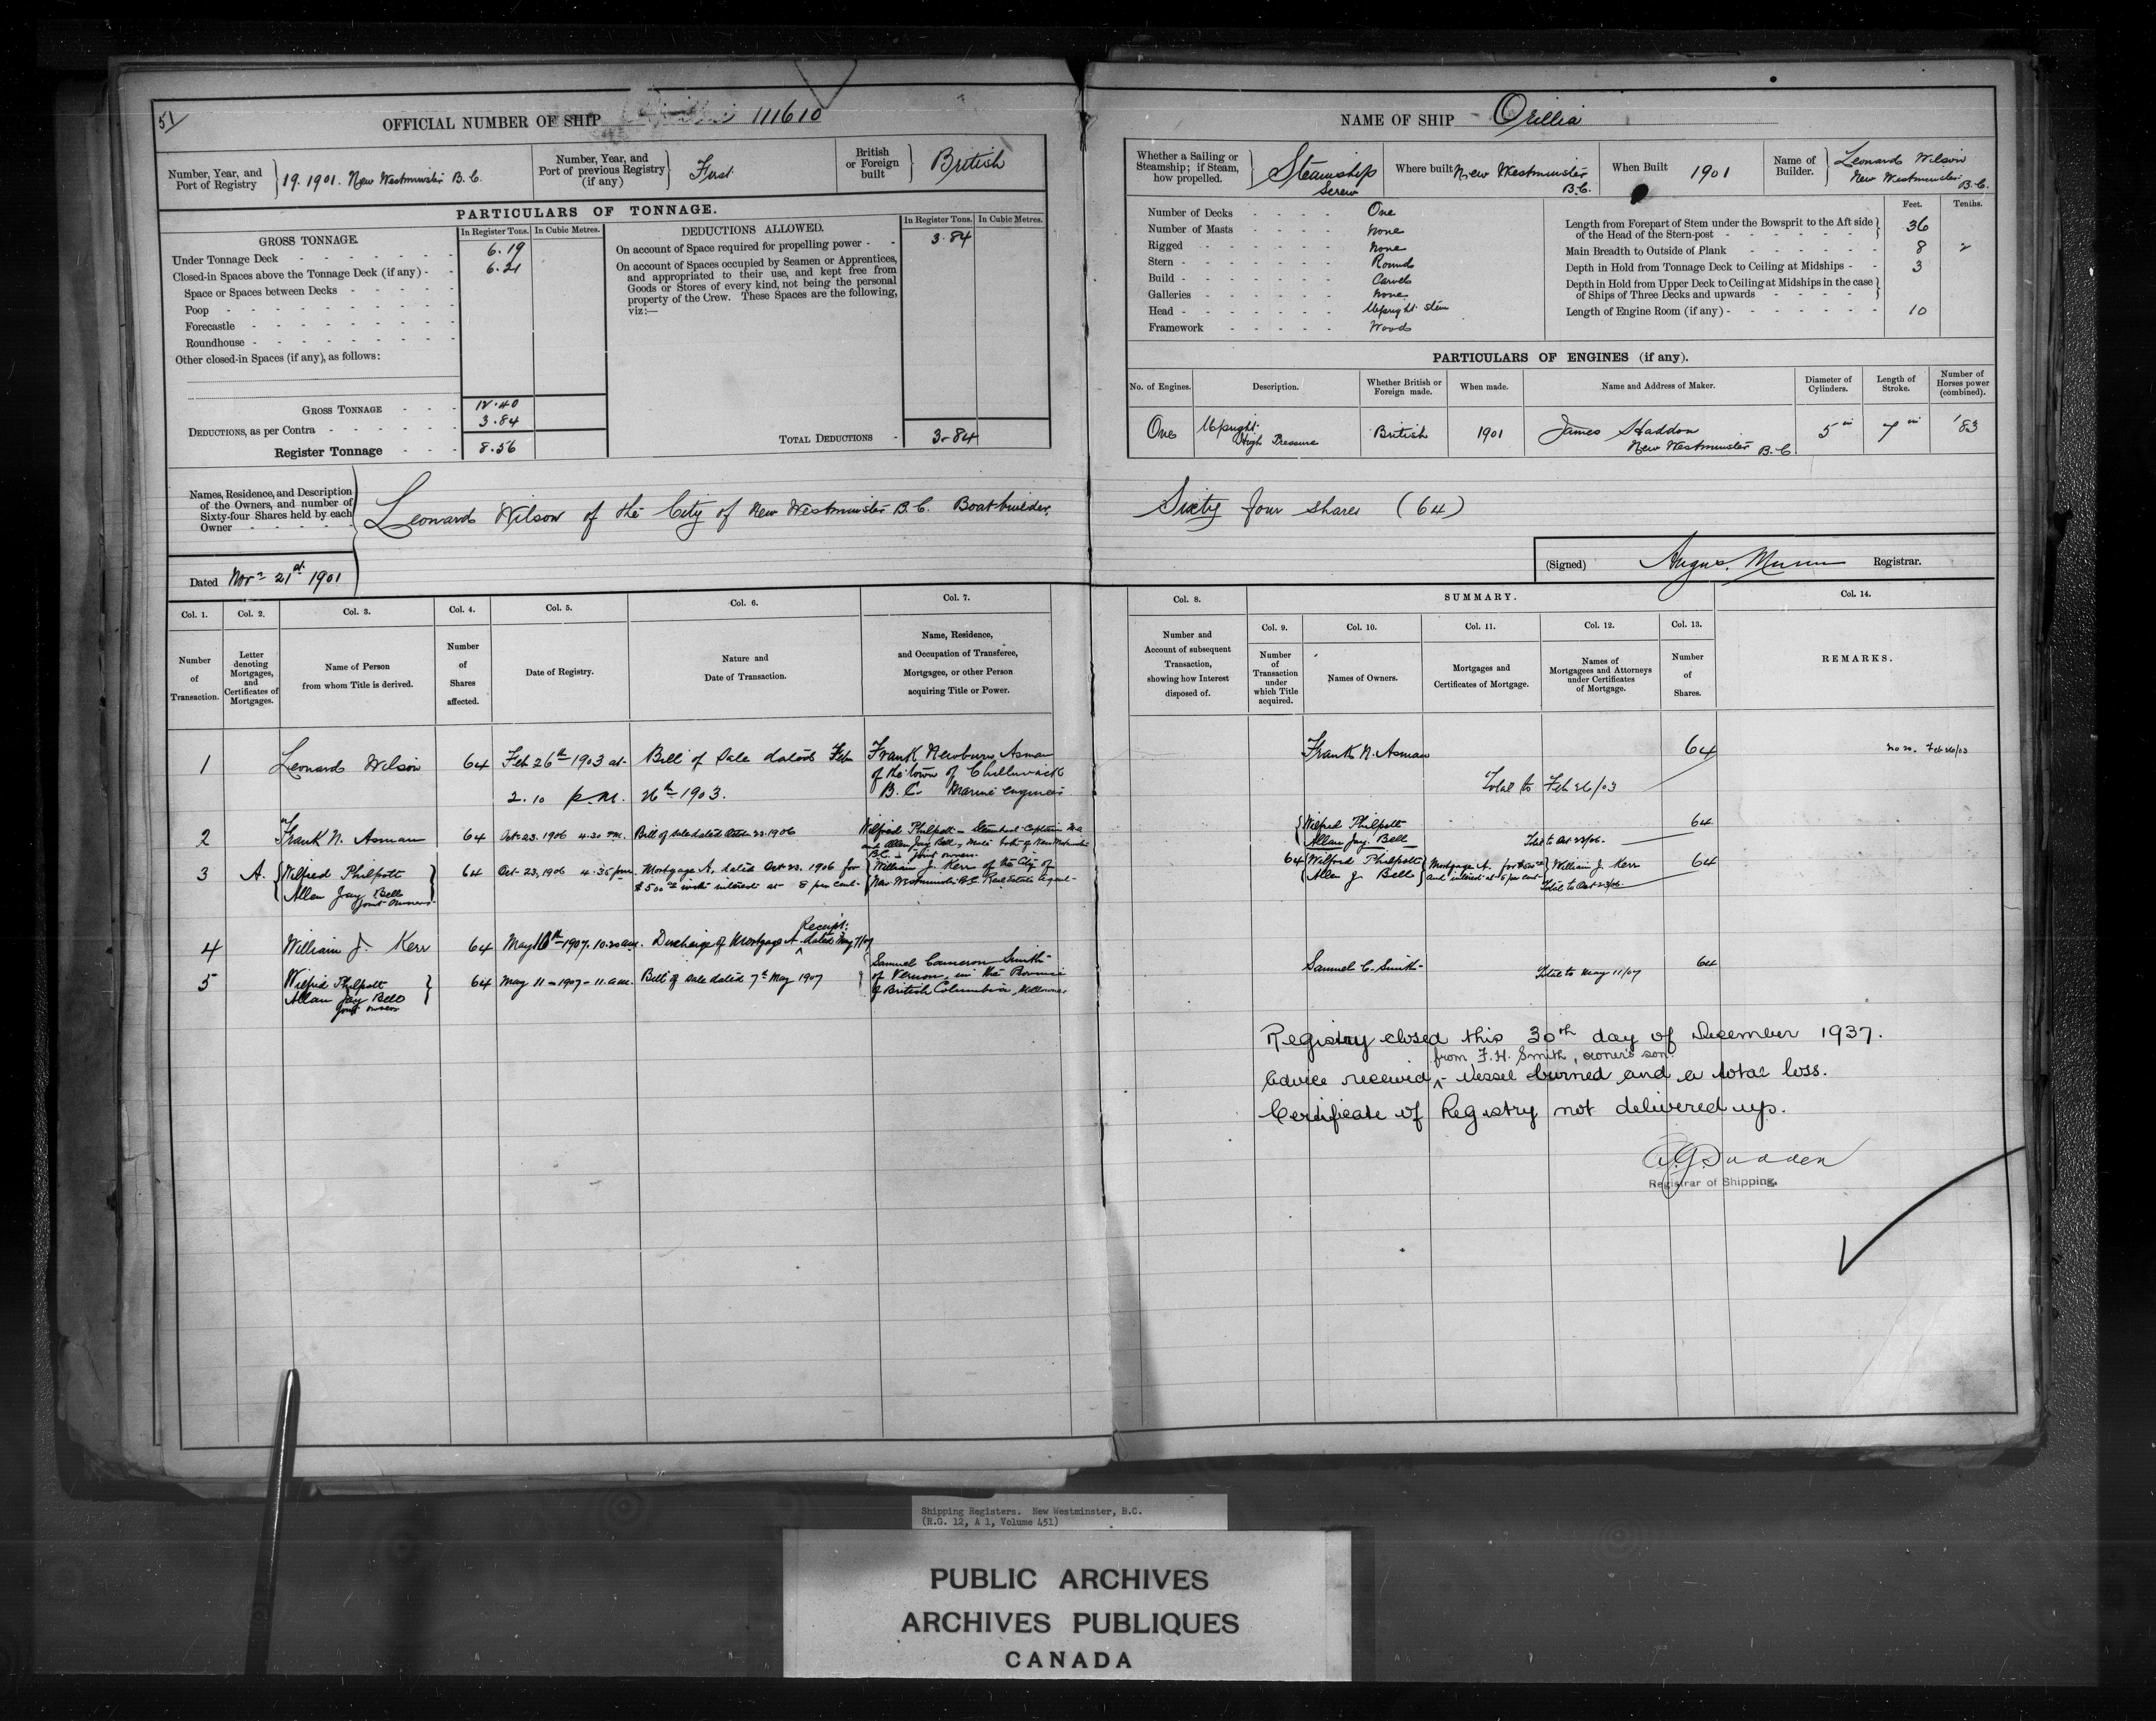 51
OFFICIAL NUMBER OF SHIP 111610
Number, Year, and Port of Registry } 19. 1901. New Westminster B.C.
Number, Year, and Port of previous Registry (if any) } First
British or Foreign built } British
PARTICULARS OF TONNAGE.
GROSS TONNAGE.
In Register Tons. In Cubic Metres.
Under Tonnage Deck 6.19
Closed-in Spaces above the Tonnage Deck (if any) 6.21
Space or Spaces between Decks
Poop
Forecastle
Roundhouse
Other closed-in Spaces (if any), as follows:
GROSS TONNAGE 12.40
DEDUCTIONS, as per Contra 3.84
Register Tonnage 8.56
DEDUCTIONS ALLOWED.
In Register Tons. In Cubic Metres.
On account of Space required for propelling power 3.84
On account of Spaces occupied by Seamen or Apprentices,
and appropriated to their use, and kept free from
Goods or Stores of every kind, not being the personal
property of the Crew. These Spaces are the following,
viz:—
TOTAL DEDUCTIONS 3.84
Names, Residence, and Description
of the Owners, and number of
Sixty-four Shares held by each
Owner
Leonard Wilson of the City of New Westminster B.C. Boat-builder.
Dated Novr 21st 1901
Col. 1. Col. 2. Col. 3. Col. 4. Col. 5. Col. 6. Col. 7.
Number of Transaction.
Letter denoting Mortgages, and Certificates of Mortgages.
Name of Person from whom Title is derived.
Number of Shares affected.
Date of Registry.
Nature and Date of Transaction.
Name, Residence, and Occupation of Transferee, Mortgagee, or other Person acquiring Title or Power.
1 Leonard Wilson 64 Feb 26th 1903 at 2.10 p.m. Bill of Sale dated Feb 26th 1903. Frank Newburn Asman
of the town of Chilliwack
B.C. Marine engineer
2 Frank N. Asman 64 Oct 23. 1906 4.30 pm. Bill of Sale dated Oct 23. 1906 Wilfred Philpott - Steamboat Captain
and Allen Jay Bell, Mate both of New Westminster
B.C. - joint owners.
3 A. { Wilfred Philpott
Allen Jay Bell }
joint owners
64 Oct 23, 1906 4.35 pm Mortgage A. dated Oct 23. 1906 for
$500 00 with interest at 8 per cent.
William J. Kerr of the City of
New Westminster B.C. Real Estate Agent
4 William J. Kerr 64 May 10th 1907. 10.20 am. Discharge of Mortgage A Receipt: dated May 7/07
5 Wilfrid Philpott
Allan Jay Bell }
joint owners
64 May 11 - 1907 - 11. am. Bill of Sale dated 7th May 1907
Samuel Cameron Smith
of Vernon, in the Province
of British Columbia, Millowner
NAME OF SHIP Orillia
Whether a Sailing or Steamship; if Steam, how propelled. } Steamship
Screw
Where built New Westminster
B.C.
When Built 1901
Name of Builder. } Leonard Wilson
New Westminster
B.C.
Number of Decks One
Number of Masts None
Rigged None
Stern Round
Build Carvel
Galleries None
Head Upright Stem
Framework Wood
Feet. Tenths.
Length from Forepart of Stem under the Bowsprit to the Aft side
of the Head of the Stern-post 36
Main Breadth to Outside of Plank 8 2
Depth in Hold from Tonnage Deck to Ceiling at Midships 3
Depth in Hold from Upper Deck to Ceiling at Midships in the case
of Ships of Three Decks and upwards
Length of Engine Room (if any) 10
PARTICULARS OF ENGINES (if any).
No. of Engines. Description. Whether British or Foreign made. When made. Name and Address of Maker. Diameter of Cylinders. Length of Stroke. Number of Horses power (combined).
One Upright High Pressure British 1901 James Haddon
New Westminster B.C. 5 in 7 in .83
Sixty four shares (64)
(Signed) Angus. Munn Registrar.
Col. 8. SUMMARY. Col. 14.
Col. 9. Col. 10. Col. 11. Col. 12. Col. 13.
Number and Account of subsequent Transaction, showing how Interest disposed of.
Number of Transaction under which Title acquired.
Names of Owners.
Mortgages and Certificates of Mortgage.
Names of Mortgagees and Attorneys under Certificates of Mortgage.
Number of Shares.
REMARKS.
Frank N. Asman 64 Feb 26/03
Total to Feb 26/03
{ Wilfred Philpott
Allan Jay Bell 64
Total to Oct 23/06.
64 { Wilfred Philpott
Allen J. Bell } Mortgage A. for $500 00
and interest at 8 per cent { William J. Kerr 64
Total to Oct 23/06.
Samuel C. Smith 64
Total to May 11/07
Registry closed this 30th day of December 1937.
from F.H. Smith, owner's son
Advice received ^ - Vessel burned and a total loss.
Certificate of Registry not delivered up.
Registrar of Shipping.
Shipping Registers. New Westminster, B.C.
(R.G. 12, A 1, Volume 451)
PUBLIC ARCHIVES
ARCHIVES PUBLIQUES
CANADA